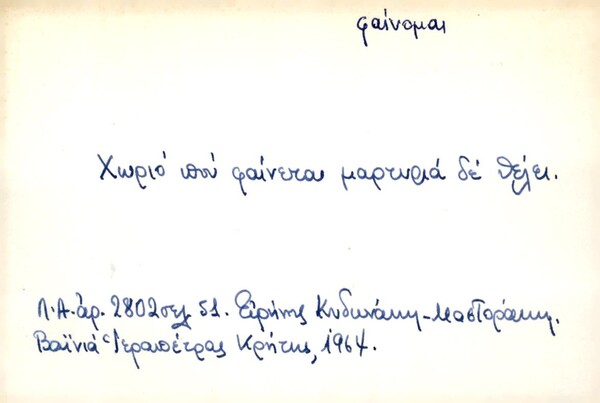 φαίνομαι
Χωριό πού φαίνεται μαρτυριά δέ θέλει.
Λ.Α. ἀρ. 2802 σελ 51. Εἰρήνης Κυδωνάκη-Μαστοράκη.
Βαϊνιά Ἱεραπέτρας Κρήτης, 1964.